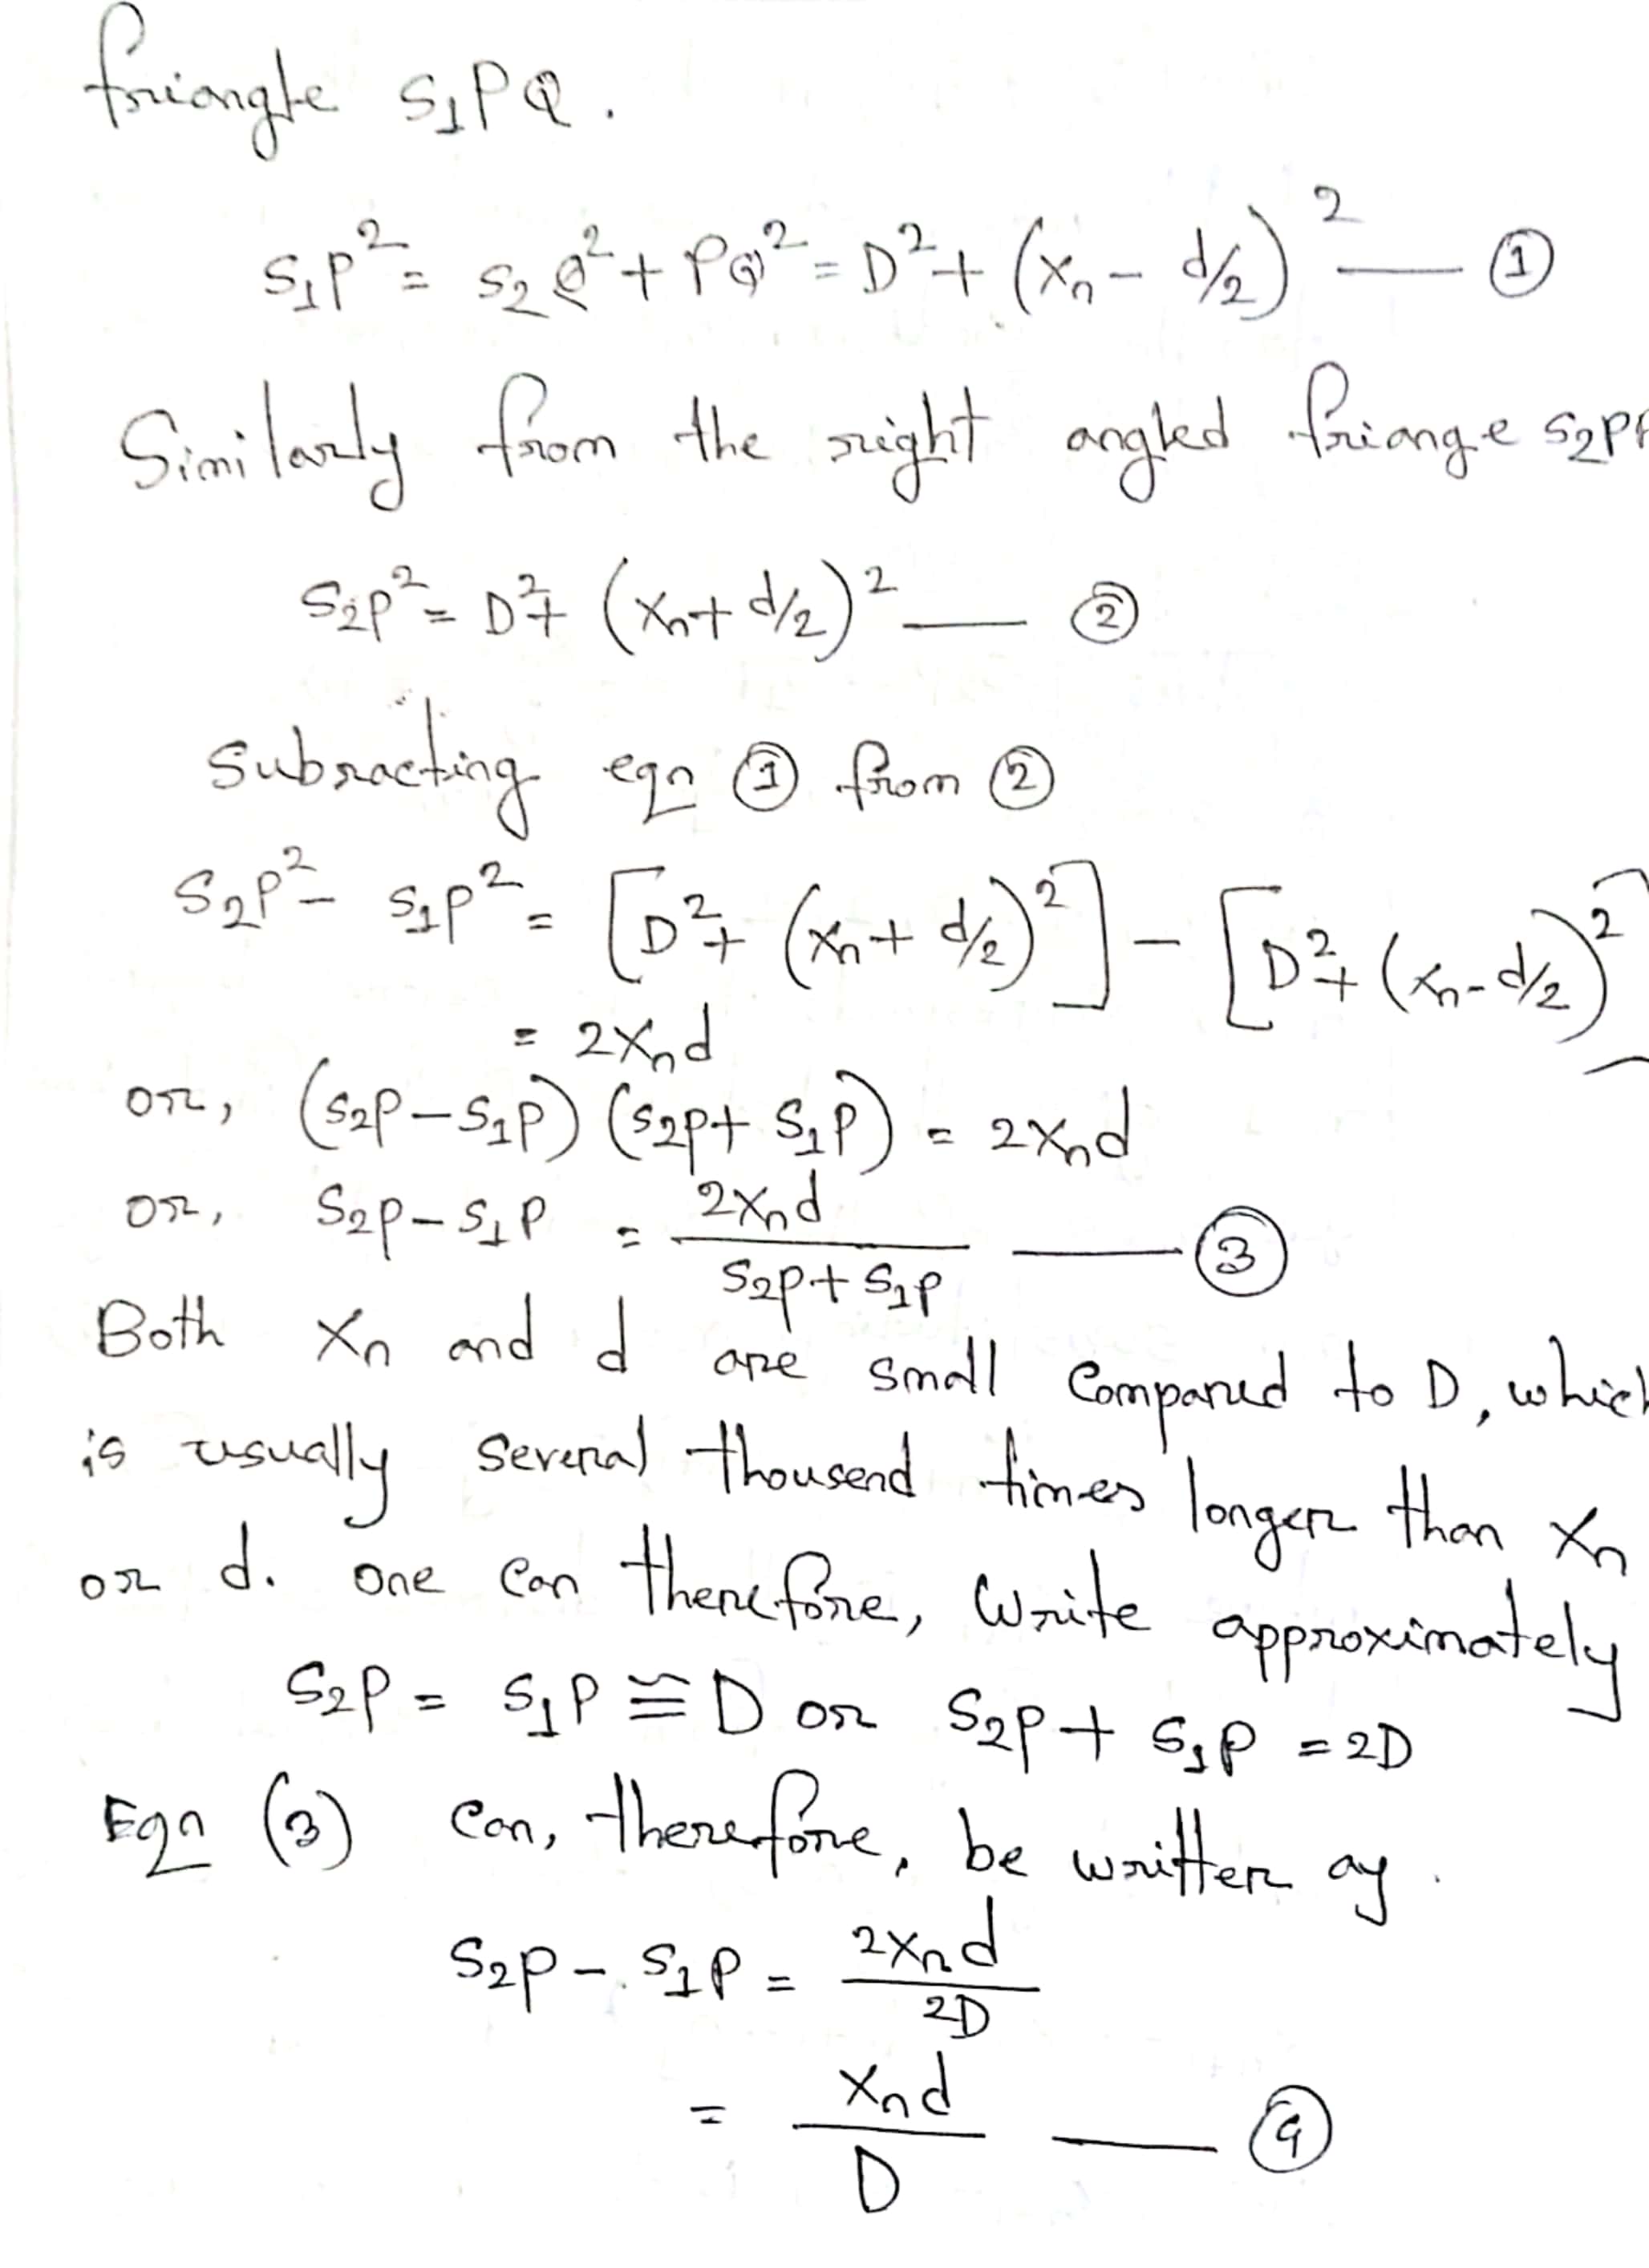 triangle S₁PQ.
S₁P² = S₂Q² + PQ² = D² + (xₙ - d/2)² — ①
Similarly from the right angled triange S₂PR
S₂P² = D² + (xₙ + d/2)² — ②
Subracting eqn ① from ②
S₂P² - S₁P² = [D² + (xₙ + d/2)²] - [D² + (xₙ - d/2)²]
= 2xₙd
or, (S₂P - S₁P) (S₂P + S₁P) = 2xₙd
or, S₂P - S₁P = 2xₙd / S₂P + S₁P — ③
Both xₙ and d are small compared to D, which
is usually several thousend times longer than xₙ
or d. one can therefore, write approximately
S₂P = S₁P ≅ D or S₂P + S₁P = 2D
Eqn (3) can, therefore, be written as.
S₂P - S₁P = 2xₙd / 2D
= xₙd / D — ④